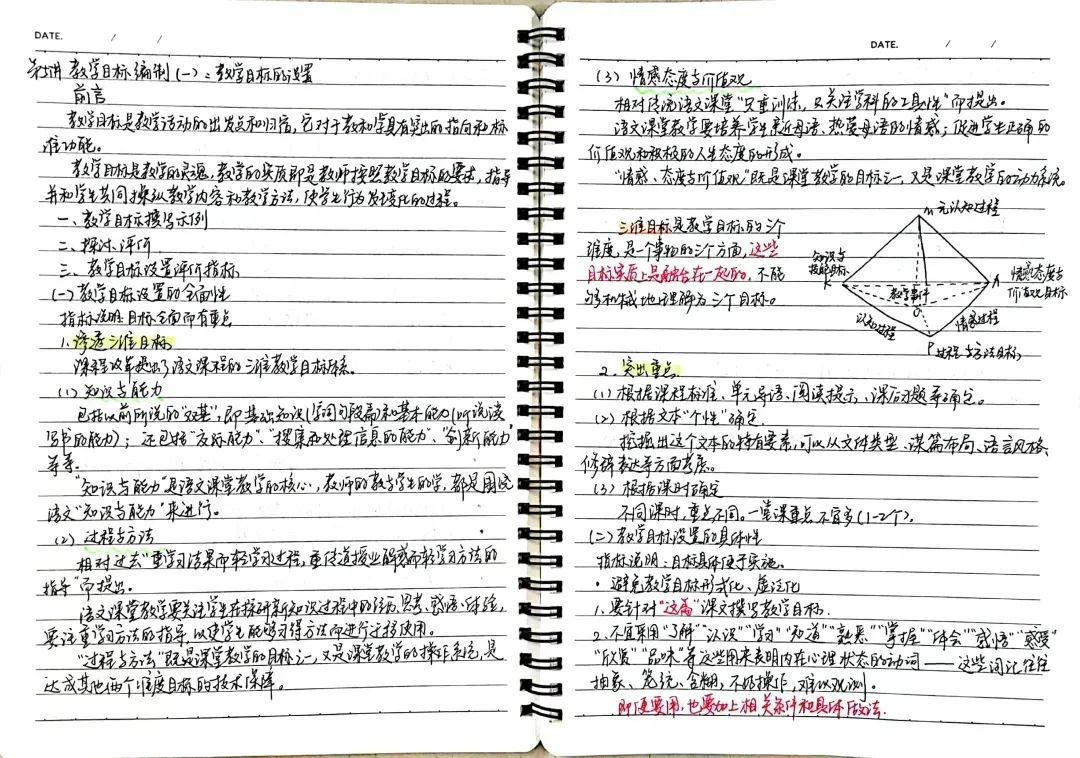 DATE. / /
第五讲 教学目标编制(一)：教学目标的设置
前言
教学目标是教学活动的出发点和归宿，它对于教和学具有突出的指向和标
准功能。
教学目标是教学的灵魂，教学的实质即是教师按照教学目标的要求，指导
并和学生共同操纵教学内容和教学方法，使学生行为发生变化的过程。
一、教学目标撰写示例
二、探讨、评价
三、教学目标设置评价指标
(一)教学目标设置的全面性
指标说明：目标全面而有重点
1.渗透三维目标
课程改革提出了语文课程的三维教学目标体系。
(1)知识与能力
包括以前所说的"双基"，即基础知识(字词句段篇)和基本能力(听说读
写书的能力)；还包括"交际能力"、"搜集和处理信息的能力"、"创新能力"
等等。
"知识与能力"是语文课堂教学的核心，教师的教与学生的学，都是围绕
语文"知识与能力"来进行。
(2)过程与方法
相对过去"重学习结果而轻学习过程，重传道授业解惑而轻学习方法的
指导"而提出。
语文课堂教学要关注学生在探研新知识过程中的经历、思考、感悟、体验，
要注重学习方法的指导，以使学生能够习得方法而进行迁移使用。
"过程与方法"既是课堂教学的目标之一，又是课堂教学的操作系统，是
达成其他两个维度目标的技术保障。
DATE. / /
(3)情感态度与价值观
相对传统语文课堂"只重训练，只关注学科的工具性"而提出。
语文课堂教学要培养学生亲近母语、热爱母语的情感；促进学生正确的
价值观和积极的人生态度的形成。
"情感、态度与价值观"既是课堂教学的目标之一，又是课堂教学的动力系统。
三维目标是教学目标的三个
维度，是一个事物的三个方面，这些
目标实质上是融合在一起的，不能
够机械地理解为三个目标。
M 元认知过程
知识与
技能目标
K
A
情感态度与
价值观目标
教学事件
O
认知过程
情感过程
P 过程与方法目标
2.突出重点
(1)根据课程标准、单元导语、阅读提示、课后习题等确定。
(2)根据文本"个性"确定
挖掘出这个文本的特有要素，可以从文体类型、谋篇布局、语言风格、
修辞表达等方面考虑。
(3)根据课时确定
不同课时，重点不同。一堂课重点不宜多(1-2个)。
(二)教学目标设置的具体性
指标说明：目标具体便于实施。
·避免教学目标形式化、虚泛化
1.要针对"这篇"课文撰写教学目标.
2.不宜采用"了解""认识""学习""知道""熟悉""掌握""体会""感悟""感受"
"欣赏""品味"等这些用来表明内在心理状态的动词——这些词汇往往
抽象、笼统、含糊，不好操作，难以观测。
即便要用，也要加上相关条件和具体做法.